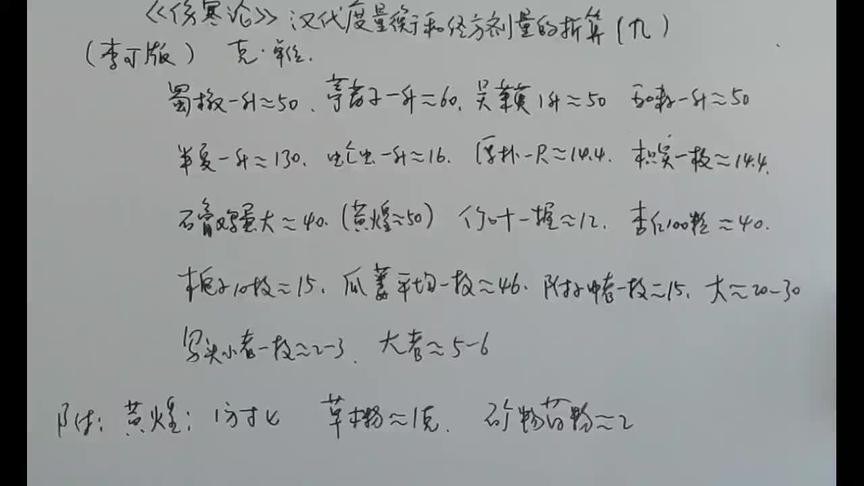 《伤寒论》汉代度量衡和经方剂量的折算(九)
(李可版) 克·单位.
蜀椒一升≈50、葶苈子一升≈60, 吴萸1升≈50 五味一升≈50
半夏一升≈130, 虻虫一升≈16. 厚朴一尺≈14.4. 枳实一枚≈14.4.
石膏鸡蛋大≈40.(黄煌≈50) 竹叶一握≈12. 杏仁100粒≈40.
栀子10枚≈15、瓜蒌平均一枚≈46. 附子中者一枚≈15, 大≈20-30
乌头小者一枚≈2-3、大者≈5-6
附: 黄煌: 1方寸匕 草本粉≈1克. 矿物药粉≈2